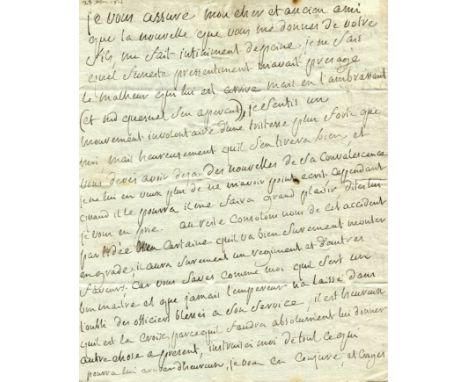 je vous assure mon cher et ancien ami
que la nouvelle que vous me donnez de votre
fils me fait infiniment de peine je ne sais
quel funeste pressentiment m'avait presagé
le malheur qui lui est arrivé mais en l'embrassant
(et sud quesnel s'en aperçut) je sentis un
mouvement involontaire d'une tristesse plus forte que
moi mais heureusement qu'il s'en tirera bien, et
vous devés avoir deja des nouvelles de sa convalescence
je ne lui en veux plus de ne m'avoir point ecrit, cependant
quand il le pourra il me faira grand plaisir dites lui
je vous en prie. au reste consolons nous de cet accident
par l'idée certaine qu'il va bien surement monter
en grade, il aura surement un regiment et d'autres
faveurs. Car vous savés comme moi que sert un
bon maitre et que jamais l'empereur n'a laissé dans
l'oubli des officiers blessés a son service, il est heureux
qu'il est la Croix, parce qu'il faudra absolument lui donner
autre chose a present, instruisés moi de tout ce qui
pourra lui arriver d'heureux, je vous en conjure, et croyez